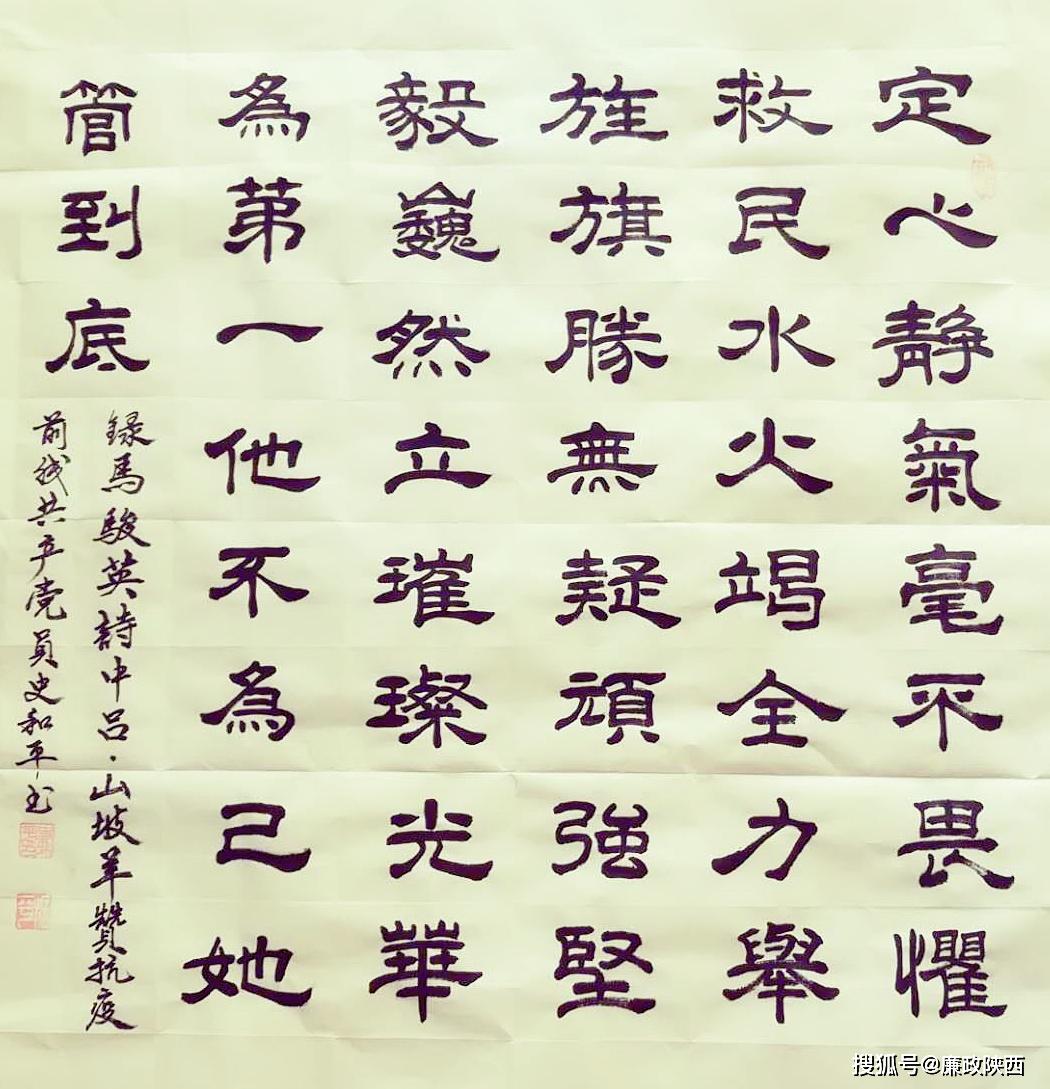 定心靜氣毫平畏懼
救民水火竭全力舉
旌旗勝無疑頑強堅
毅巍然立璀璨光華
為第一他不為己她
管到底
録馬駿英詩中呂·山坡羊贊抗疫
前线共产党員史和平书
搜狐号@廉政陕西